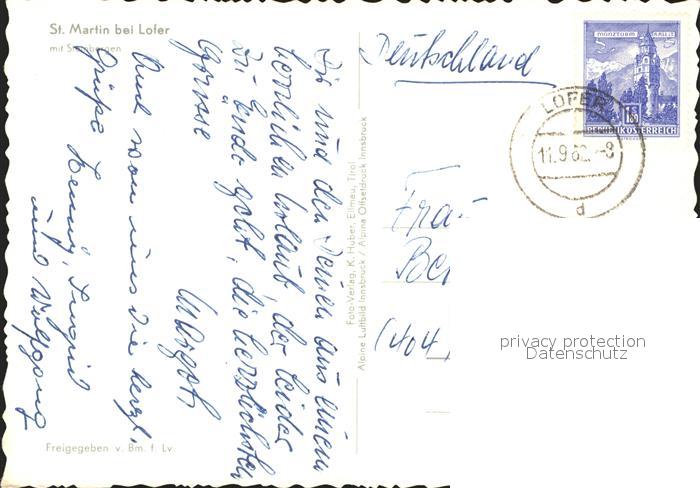 St. Martin bei Lofer
mit Steinbergen
Dir und den Deinen aus einem
herrlichen Urlaub, der leider
zu Ende geht, die herzlichsten
Grüsse
Margot
Auch von uns die herzl.
Grüße Henni, Ingrid
und Wolfgang
Freigegeben v. Bm. f. Lv.
Foto-Verlag. K. Huber, Ellmau, Tirol
Alpine Luftbild Innsbruck / Alpina Offsetdruck Innsbruck
Deutschland
MÜNZTURM HALL I. T.
1.80
REPUBLIK ÖSTERREICH
LOFER
11.9.62.-8
d
Frau
Ber
(404
privacy protection
Datenschutz